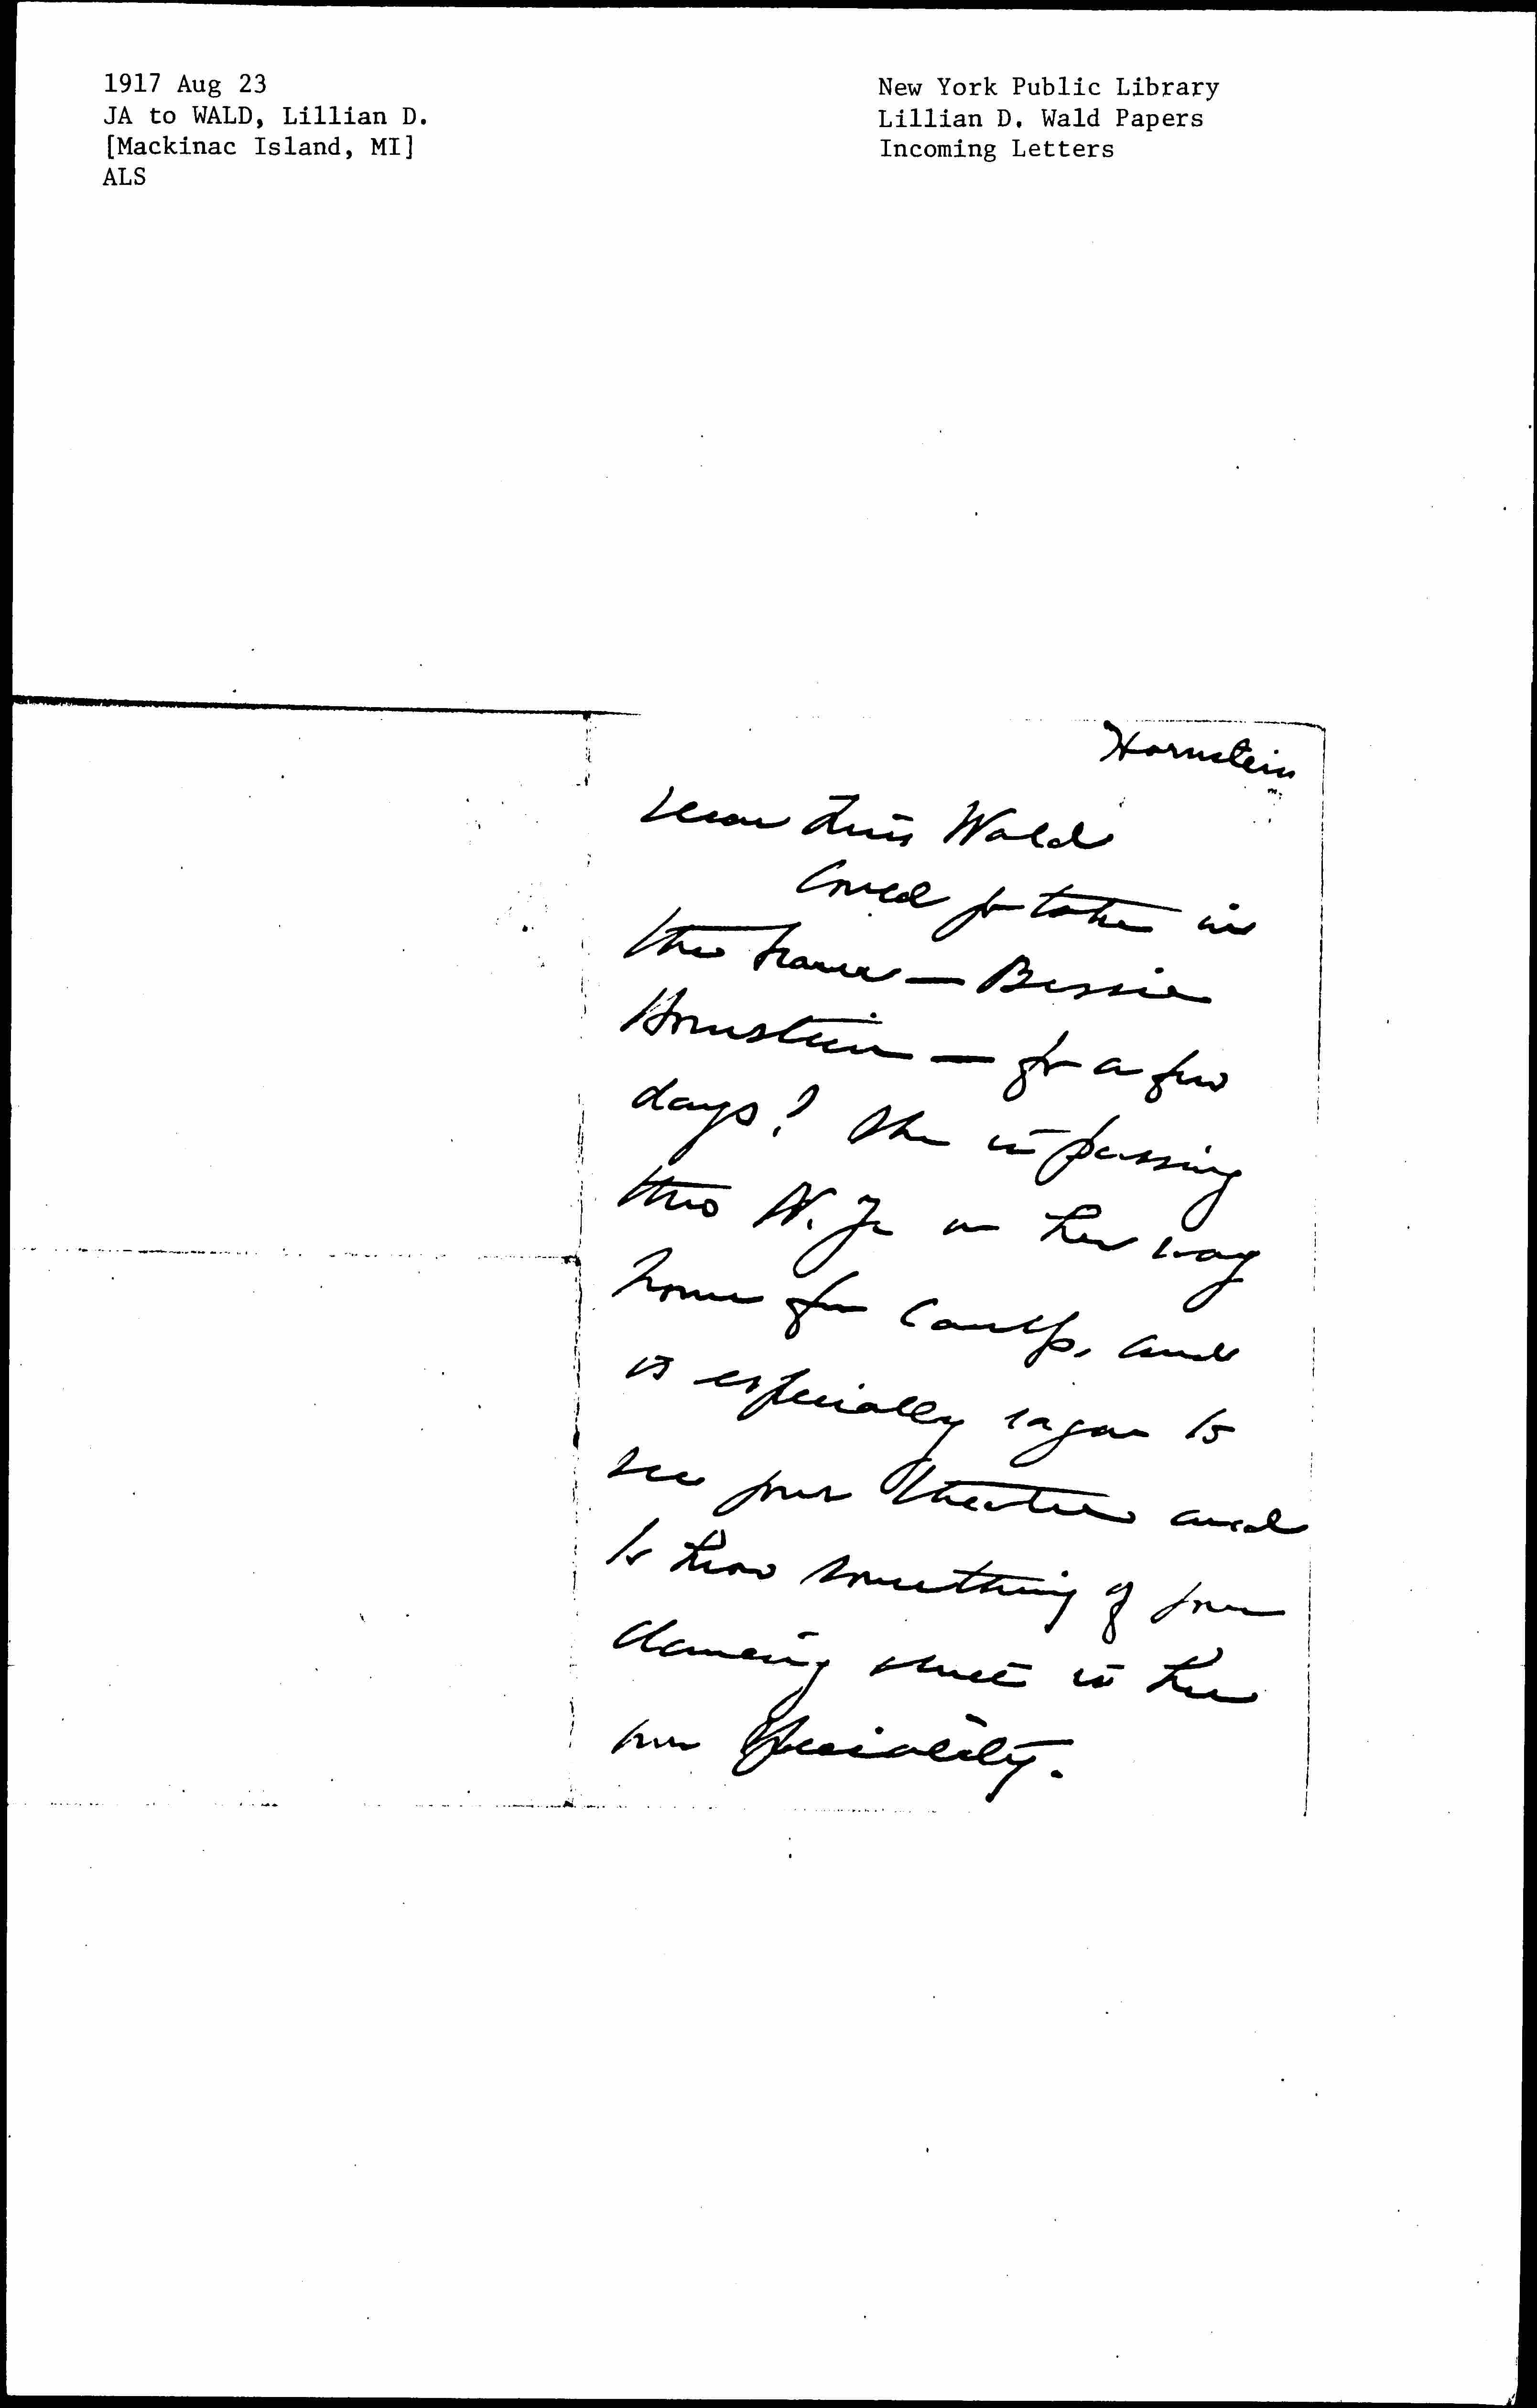 1917 Aug 23
JA to WALD, Lillian D.
[Mackinac Island, MI]
ALS
New York Public Library
Lillian D. Wald Papers
Incoming Letters
Hornstein
Dear Miss Wald
Could you take in
the — Bessie
Hornstein — for a few
days? She is passing
thro N. Y. on her way
home from Camp, and
is especially eager to
see your theatre and
to know something of your
dancing since it is her
own speciality.